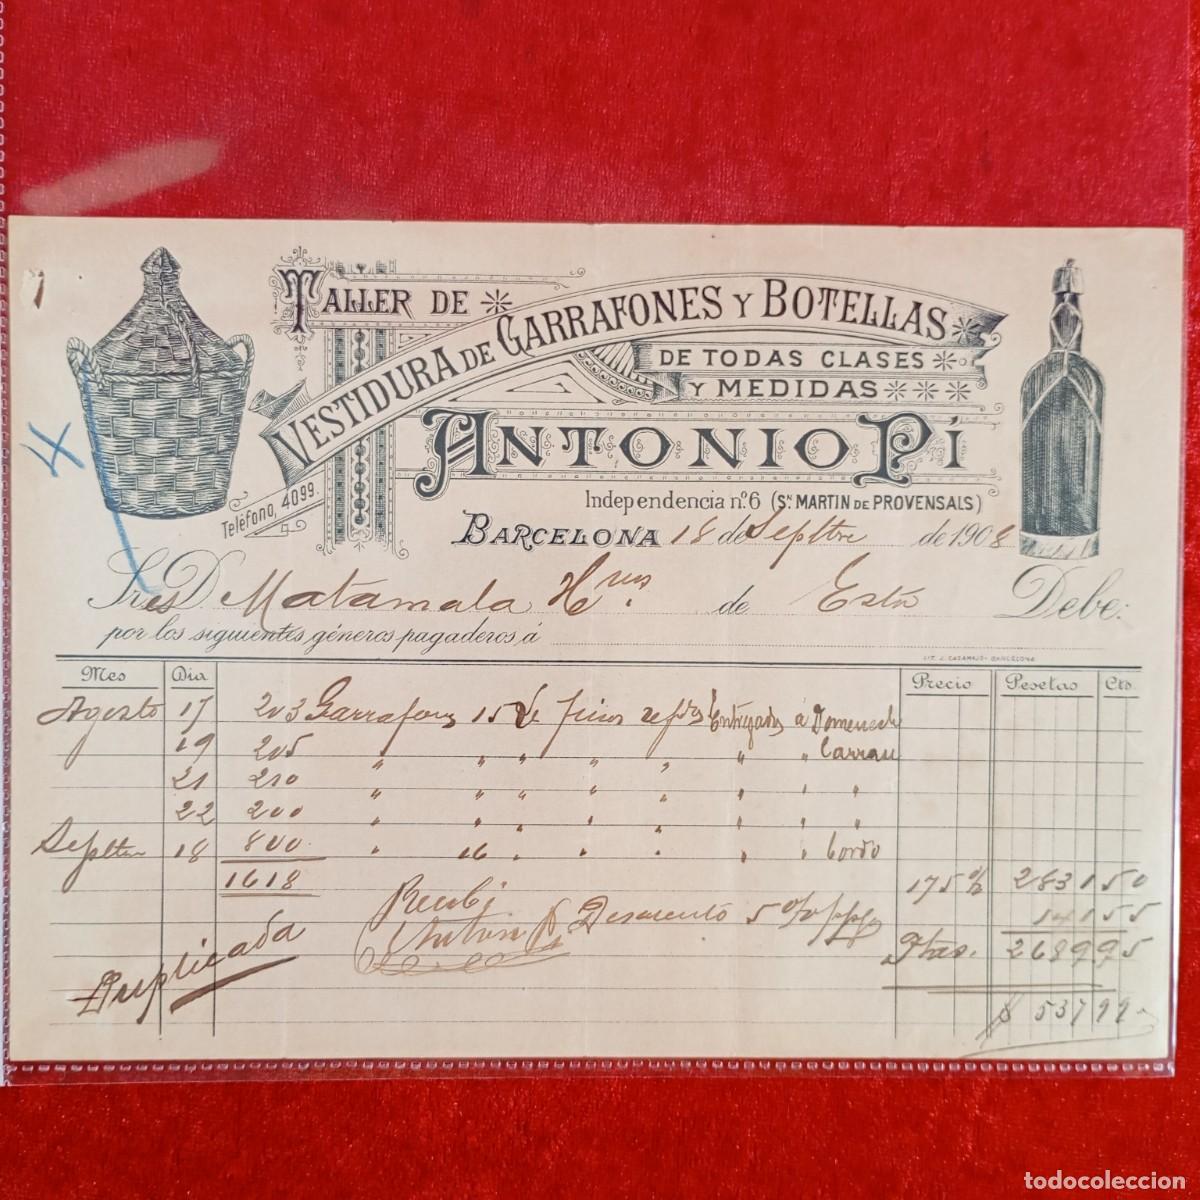 4
TALLER DE
VESTIDURA DE GARRAFONES Y BOTELLAS
DE TODAS CLASES
Y MEDIDAS
ANTONIO PÍ
Teléfono, 4099.
Independencia nº. 6 (Sn. MARTIN DE PROVENSALS)
BARCELONA 18 de Sepbtre de 1908
Sres D. Matamala Hnos. de Esta Debe:
por los siguientes géneros pagaderos á
LIT. J. CASAMAJÓ-BARCELONA
Mes Dia Precio Pesetas Cts.
Agosto 17 203 Garrafones 15 finos Entregados á Domenech
19 205 " " " " " " " Carrau
21 210 " " " " " " " "
22 200 " " " " " " " "
Sepbtre 18 800 " 16 " " " " " Cordo
1618 175 % 2831 50
Recibi Descuento 5 % p.pgo 141 55
Antonio Pí Ptas. 2689 95
Duplicada
$ 537 99
todocoleccion